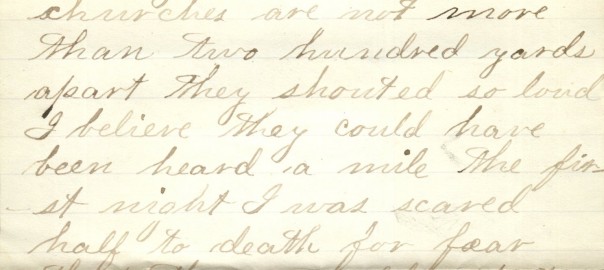 churches are not more
than two hundred yards
apart they shouted so loud
I believe they could have
been heard a mile the fir-
st night I was scared
half to death for fear